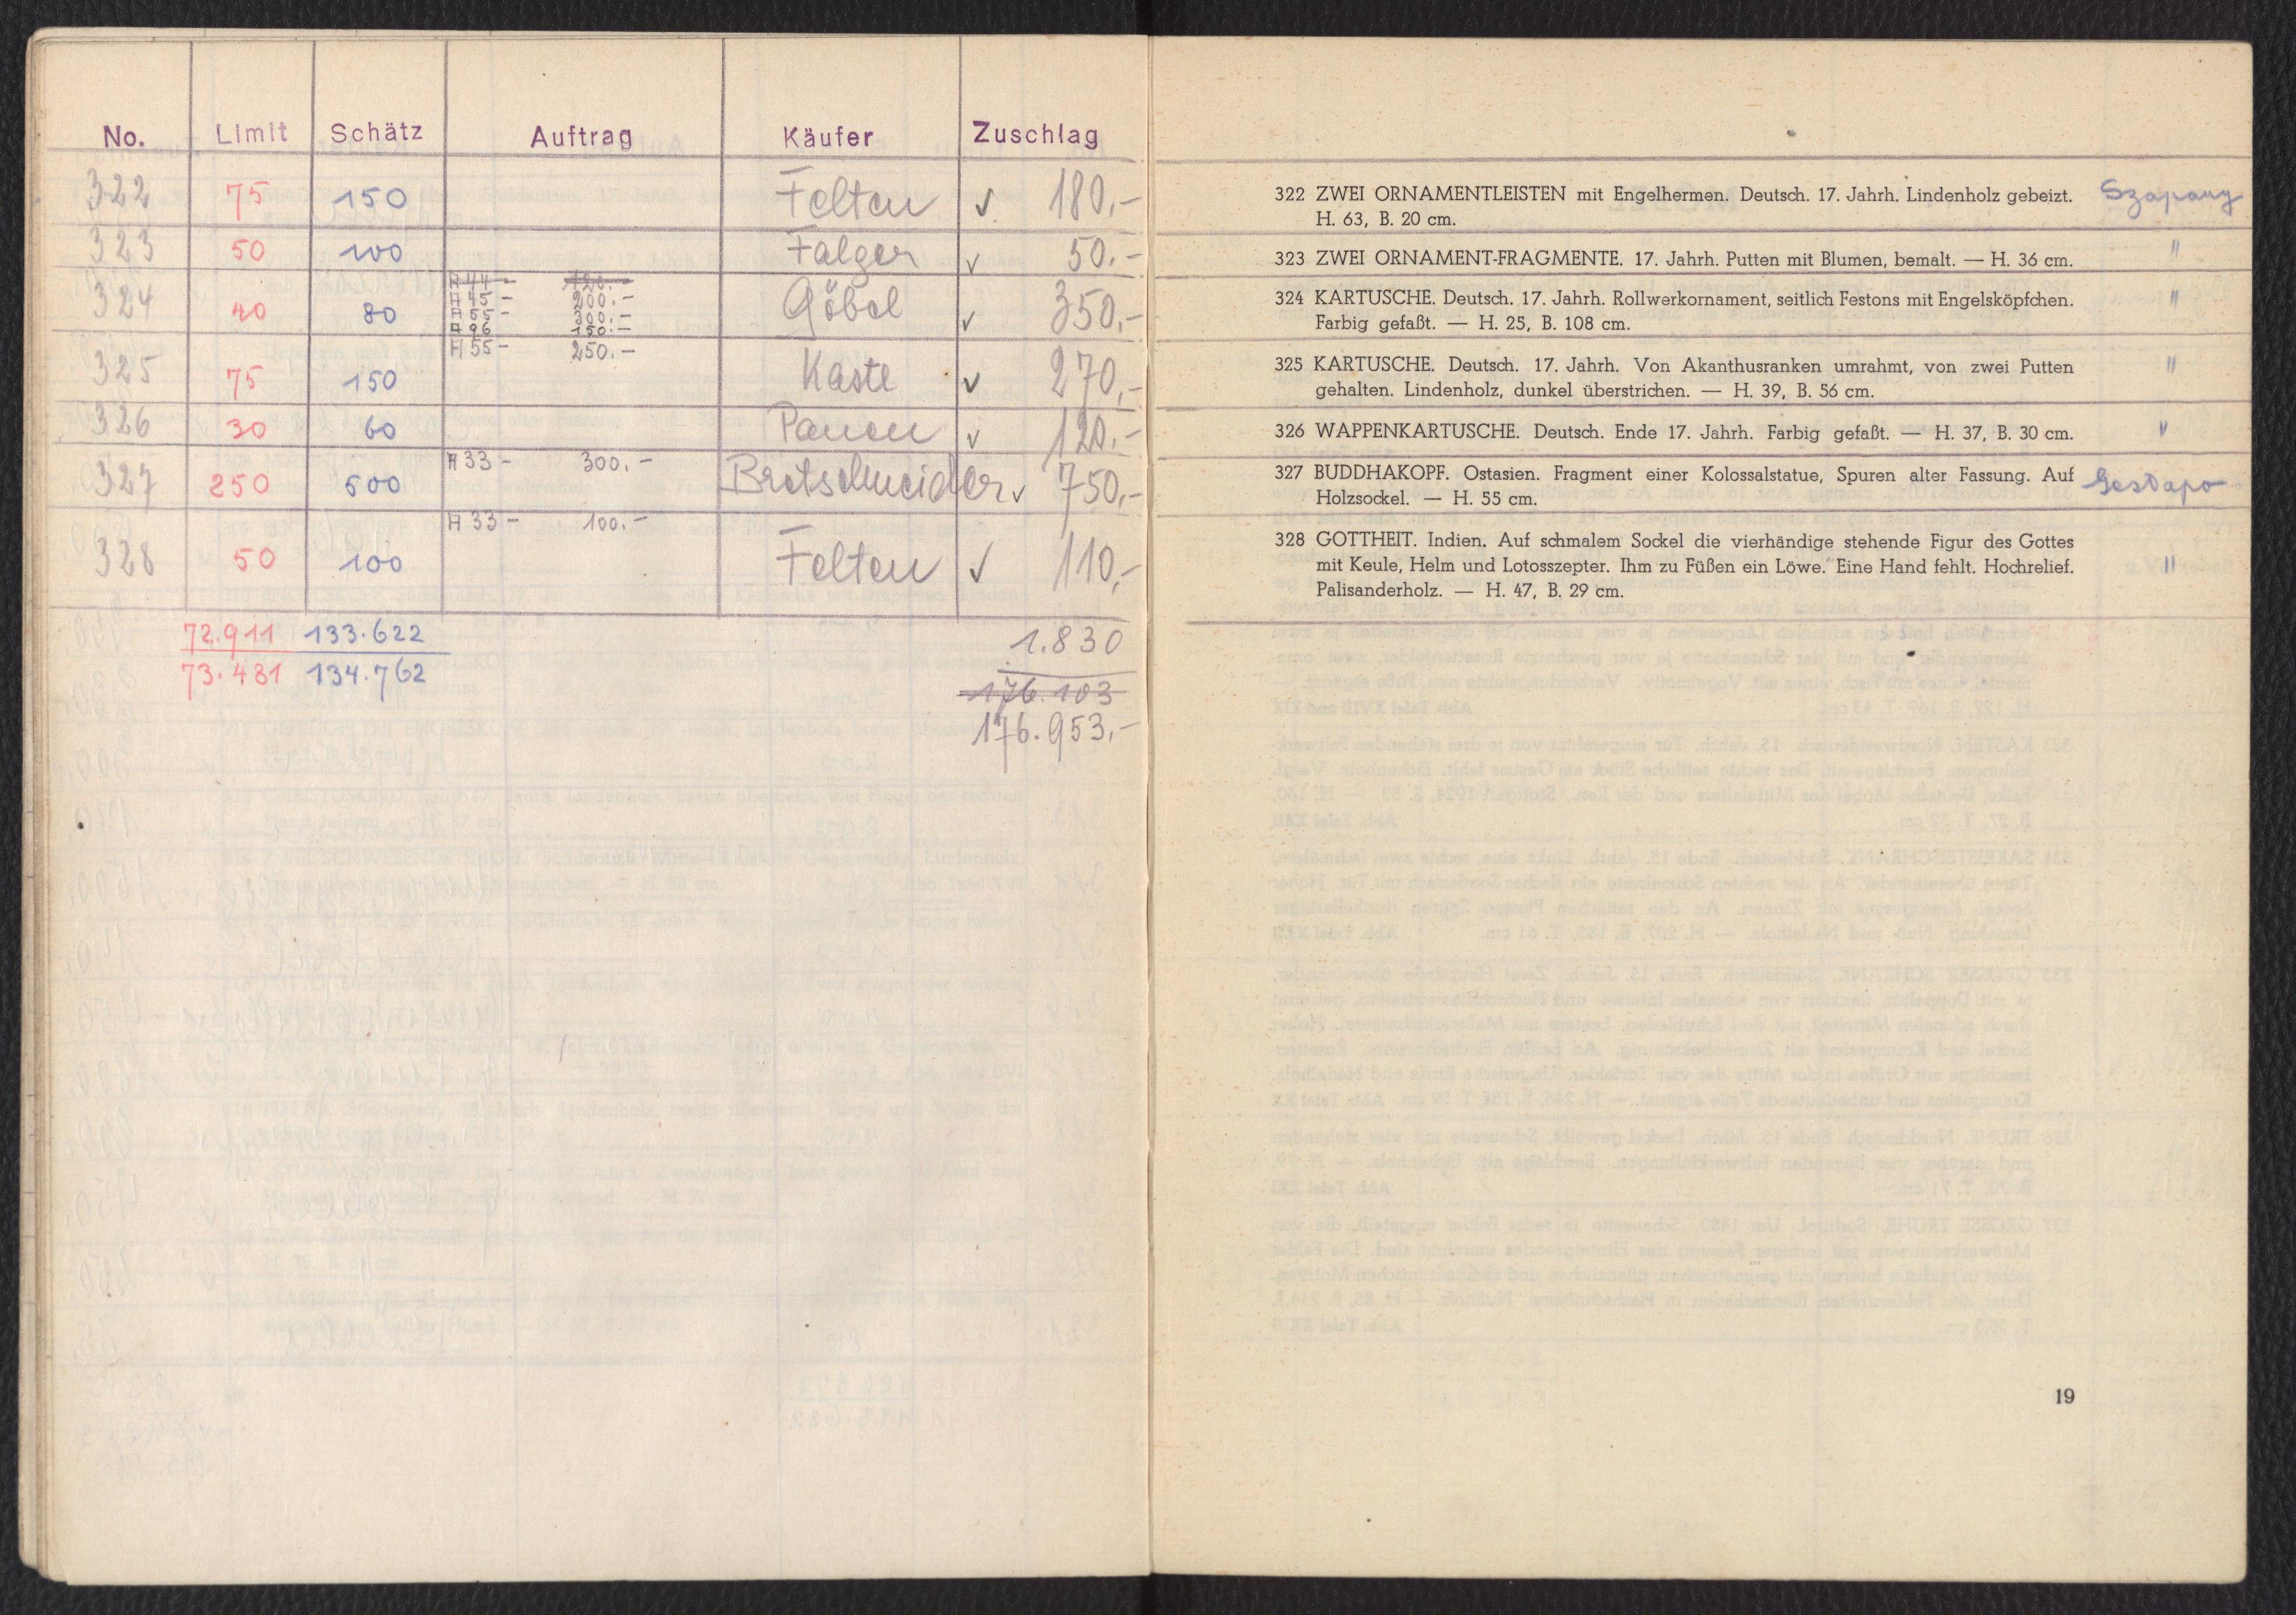 No. Limit Schätz Auftrag Käufer Zuschlag
322 75 150 Felten ✓ 180,-
323 50 100 Falger ✓ 50.-
324 40 80 A 44 - 120.- Göbel ✓ 350,-
A 45 - 200.-
A 55 - 300.-
A 96 150.-
325 75 150 A 55 - 250.- Kaste ✓ 270,-
326 30 60 ✓ 120.-
327 250 500 A 33 - 300.- Bretschneider ✓ 750,-
328 50 100 A 33 - 100.- Felten ✓ 110,-
72.911 133.622 1.830
73.481 134.762 176.103
176.953,-
322 ZWEI ORNAMENTLEISTEN mit Engelhermen. Deutsch. 17. Jahrh. Lindenholz gebeizt. Szapary
H. 63, B. 20 cm.
323 ZWEI ORNAMENT-FRAGMENTE. 17. Jahrh. Putten mit Blumen, bemalt. — H. 36 cm. "
324 KARTUSCHE. Deutsch. 17. Jahrh. Rollwerkornament, seitlich Festons mit Engelsköpfchen. "
Farbig gefaßt. — H. 25, B. 108 cm.
325 KARTUSCHE. Deutsch. 17. Jahrh. Von Akanthusranken umrahmt, von zwei Putten "
gehalten. Lindenholz, dunkel überstrichen. — H. 39, B. 56 cm.
326 WAPPENKARTUSCHE. Deutsch. Ende 17. Jahrh. Farbig gefaßt. — H. 37, B. 30 cm. "
327 BUDDHAKOPF. Ostasien. Fragment einer Kolossalstatue, Spuren alter Fassung. Auf Gestapo
Holzsockel. — H. 55 cm.
328 GOTTHEIT. Indien. Auf schmalem Sockel die vierhändige stehende Figur des Gottes
mit Keule, Helm und Lotosszepter. Ihm zu Füßen ein Löwe. Eine Hand fehlt. Hochrelief. "
Palisanderholz. — H. 47, B. 29 cm.
19